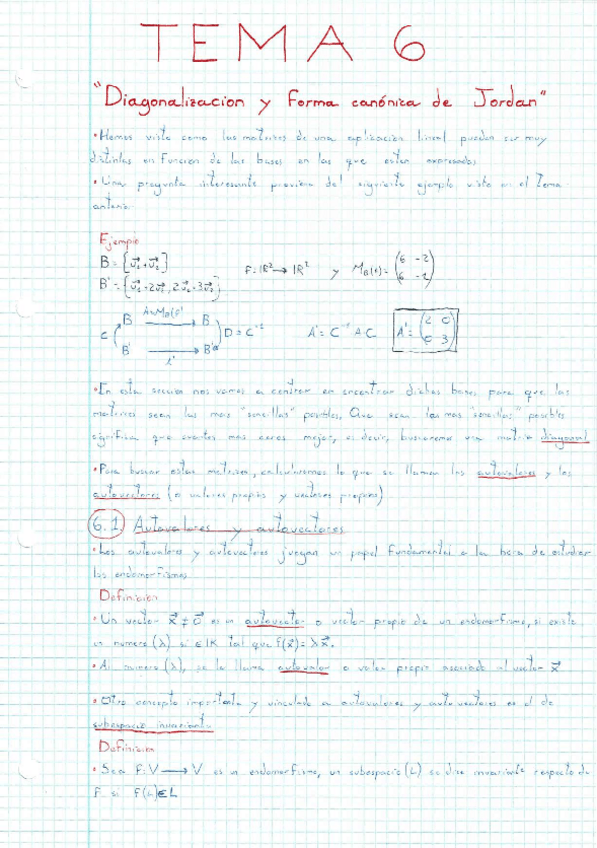 TEMA 6
"Diagonalizacion y Forma canónica de Jordan"
• Hemos visto como las matrices de una aplicación lineal pueden ser muy
distintas en función de las bases en las que esten expresadas.
• Una pregunta interesante proviene del siguiente ejemplo visto en el Tema
anterior
Ejemplo
B = {v⃗₁+v⃗₂}
F: ℝ² → ℝ² y M_B(f) = (6 -2; 6 -1)
B' = {v⃗₁+2v⃗₂, 2v⃗₁+3v⃗₂}
B A=M_B(f) B
C D = C⁻¹ A' = C⁻¹ A C A' = (2 0; 0 3)
B' B'
• En esta sección nos vamos a centrar en encontrar dichas bases para que las
matrices sean las mas "sencillas" posibles. Que sean las mas "sencillas" posibles
significa que cuantos mas ceros mejor, es decir, buscaremos una matriz diagonal
• Para buscar estas matrices, calcularemos lo que se llaman los autovalores y los
autovectores (o valores propios y vectores propios)
6.1 Autovalores y autovectores
• Los autovalores y autovectores juegan un papel fundamental a la hora de estudiar
los endomorfismos
Definición
• Un vector x⃗ ≠ 0⃗ es un autovector o vector propio de un endomorfismo, si existe
un numero (λ) si ∈ IK tal que f(x⃗) = λx⃗.
• Al numero (λ), se le llama autovalor o valor propio asociado al vector x⃗
• Otro concepto importante y vinculado a autovalores y autovectores es el de
subespacio invariante
Definición
• Sea F: V → V es un endomorfismo, un subespacio (L) se dice invariante respecto de
F si f(L) ∈ L